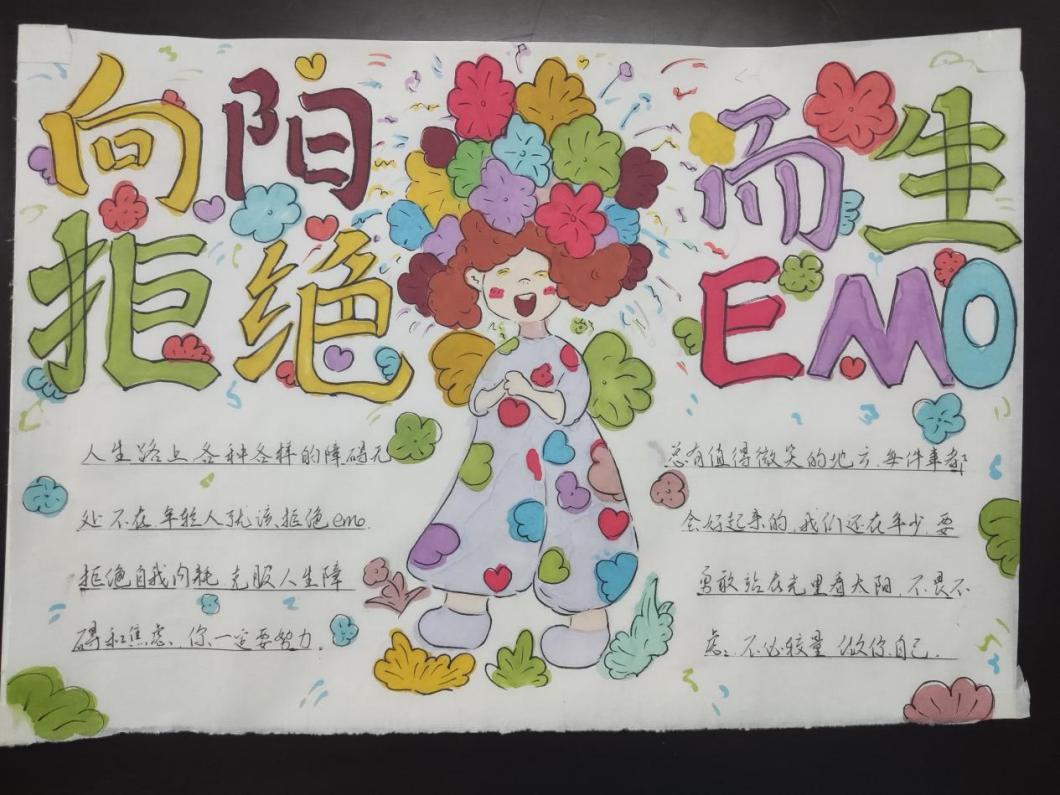 向阳而生
拒绝EMO
人生路上各种各样的障碍无
处不在年轻人就该拒绝emo.
拒绝自我内耗 克服人生障
碍和焦虑、你一定要努力.
总有值得微笑的地方.每件事都
会好起来的,我们还在年少.要
勇敢站在光里看太阳.不畏不
虑.不必较量 做你自己.